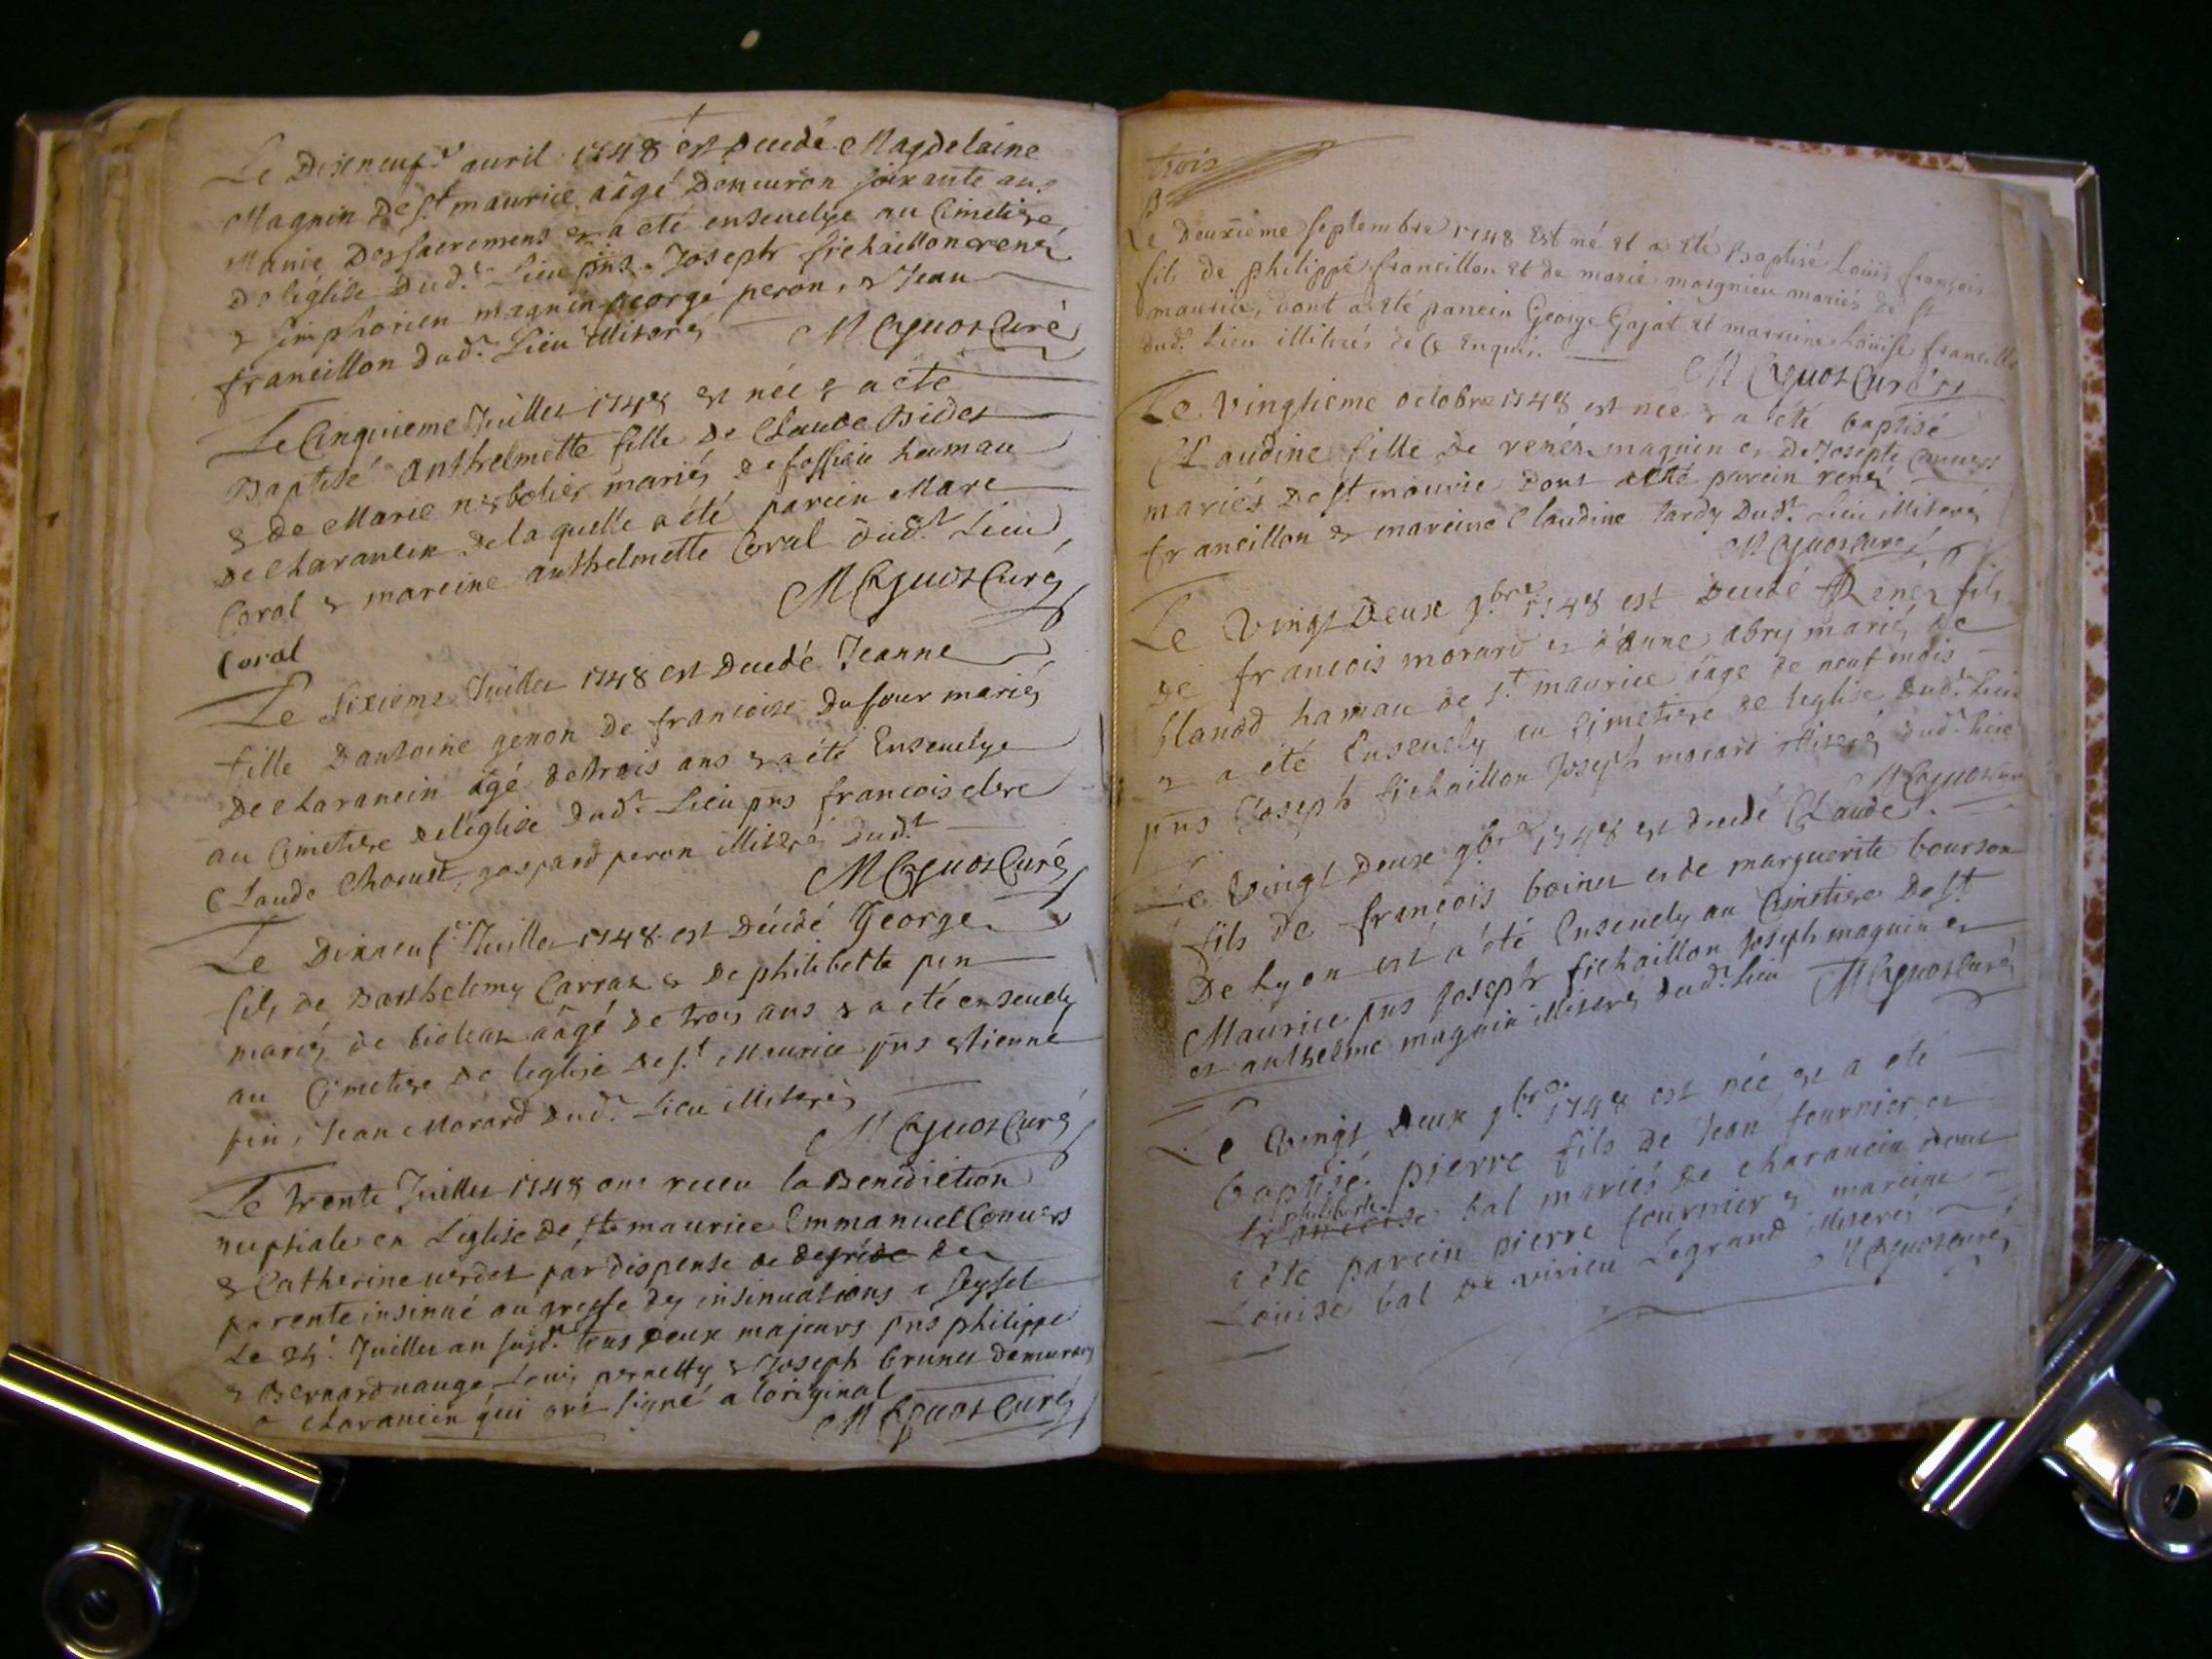 Le Disneufe auril 1748 est decedé Magdelaine
Magnin de St maurice aâgé denuiron soixante ans
Munie des sacremens & a eté enseuelye au Cimetiere
De léglise dudt. Lieu pns Joseph fichaillon rené
& simphorien magnin george peron, & Jean
francillon dudt. Lieu illiterés M Cyuoz Curé
Le Cinquieme Juillet 1748 est née & a eté
Baptisé anthelmette fille de Claude Bidet
& de Marie mariés de hamau
de charancin de laquelle a été parein Marc
Coral & mareine anthelmette Coral dudt Lieu
M Cyuoz Curé
Coral
Le sixieme Juillet 1748 est decedé Jeanne
fille dantoine genon de francoise dufour mariés
de charancin âgé de trois ans & a été Enseuelye
au Cimetiere de léglise dudt. Lieu pns francois clerc
Claude gaspard peron illiteré dudt
M Cyuoz Curé
Le Dixneufe Juillet 1748 est décédé George
fils de Barthelemy Carraz & de philiberte pin
mariés de aâgé de trois ans & a eté enseuely
au Cimetiere de leglise de St Maurice pns etienne
pin, Jean Morard dudt. Lieu illiterés
M Cyuoz Curé
Le trente Juillet 1748 ont receu la Benediction
nuptiale en Léglise de st maurice Emmanuel Conuers
& Catherine uerdet par dispense de de
parente insinué au greffe des insinuations a seyssel
Le Juillet an susdt. tous deux majeurs pns philippe
& Bernard uauge Louis pernetty & Joseph brunet demurans
a charancin qui ont signé a loriginal
M Cyuoz Curé
trois
Le Deuxième septembre 1748 Est né et a Eté Baptisé Loüis françois
fils de philippe francillon et de marie moignieu mariés de St
maurice, dont a Eté parrein George Gojat et marreine Loüise francillon
dudt. Lieu illiterés de Ce Enquis.
M Cyuoz Curé
Le vingtieme octobre 1748 est née & a été baptisé
Claudine fille de renés magnin et de Josepte Conuers
mariés de St. mourice dont a été parein rené
francillon & mareine Claudine tardy dudt. Lieu illiterés
M Cyuoz Curé
Le vingt Deux 9bre 1748 est decedé Renér fils
de francois morard et d'anne abry mariés de
blanod hamau de St maurice âge de neuf mois
& a eté Enseuely au Cimetiere de leglise dudt. Lieu
pns Joseph fichaillon Joseph morard illiteré dudt. Lieu
M Cyuoz Curé
Le vingt Deux 9bre 1748 est decedé Claude
fils de françois boinet et de marguerite bourson
De Lyon est a été Enseuely au Cimetiere De St
Maurice pns Joseph fichaillon Joseph magnin et
et anthelme magnin illiterés dudt. Lieu M Cyuoz Curé
Le vingt deux 9bre 1748 est née et a eté
baptisé pierre fils de Jean fournier et
philiberte
francoise bal mariés de charancin dont
a été parein pierre fournier & mareine
Loüise bal de virieu Legrand illiterés
M Cyuoz Curé